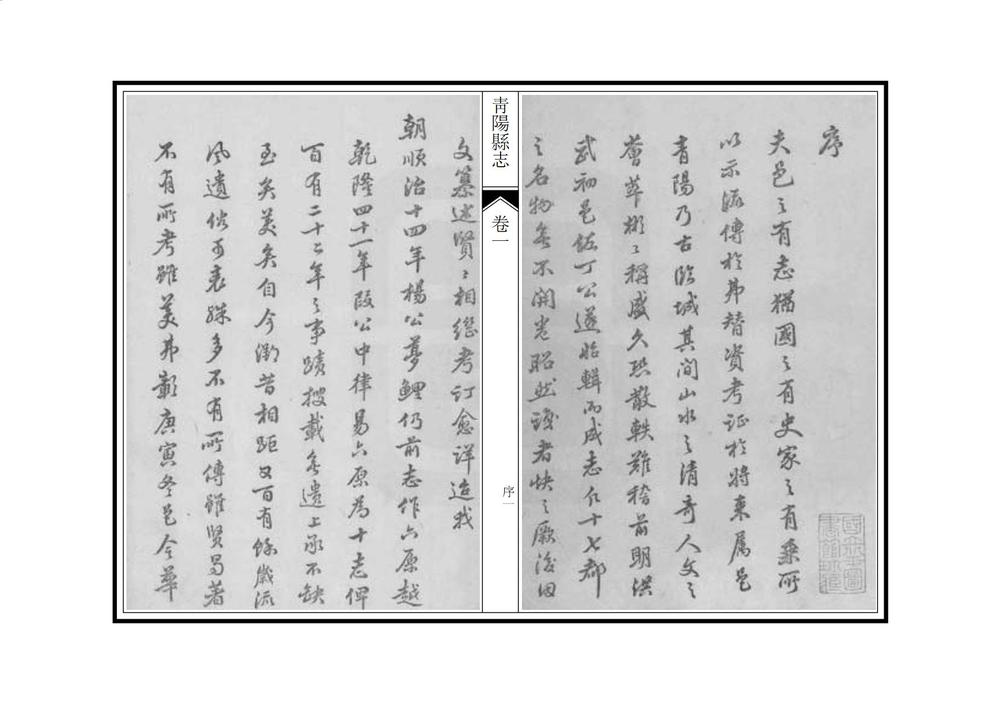 序
夫邑之有志猶國之有史家之有乘所
以示流傳於弗替資考証於將來屬邑
青陽乃古臨城其間山水之清奇人文之
薈萃彬彬稱盛久矣散軼難稽前明洪
武初邑侯丁公遂始輯而成志凡十七都
之名物無不開卷昭然讀者快之厥後因
青陽縣志
卷一
序一
文纂述賢賢相繼考訂愈詳迨我
朝順治十四年楊公夢鯉仍前志作六原越
乾隆四十一年段公中律易六原為十志俾
百有二十七年之事蹟搜載無遺上承不缺
至矣美矣自今溯昔相距又百有餘歲流
風遺俗可表殊多不有所傳雖賢曷著
不有所考雖美弗彰庚寅冬邑令華